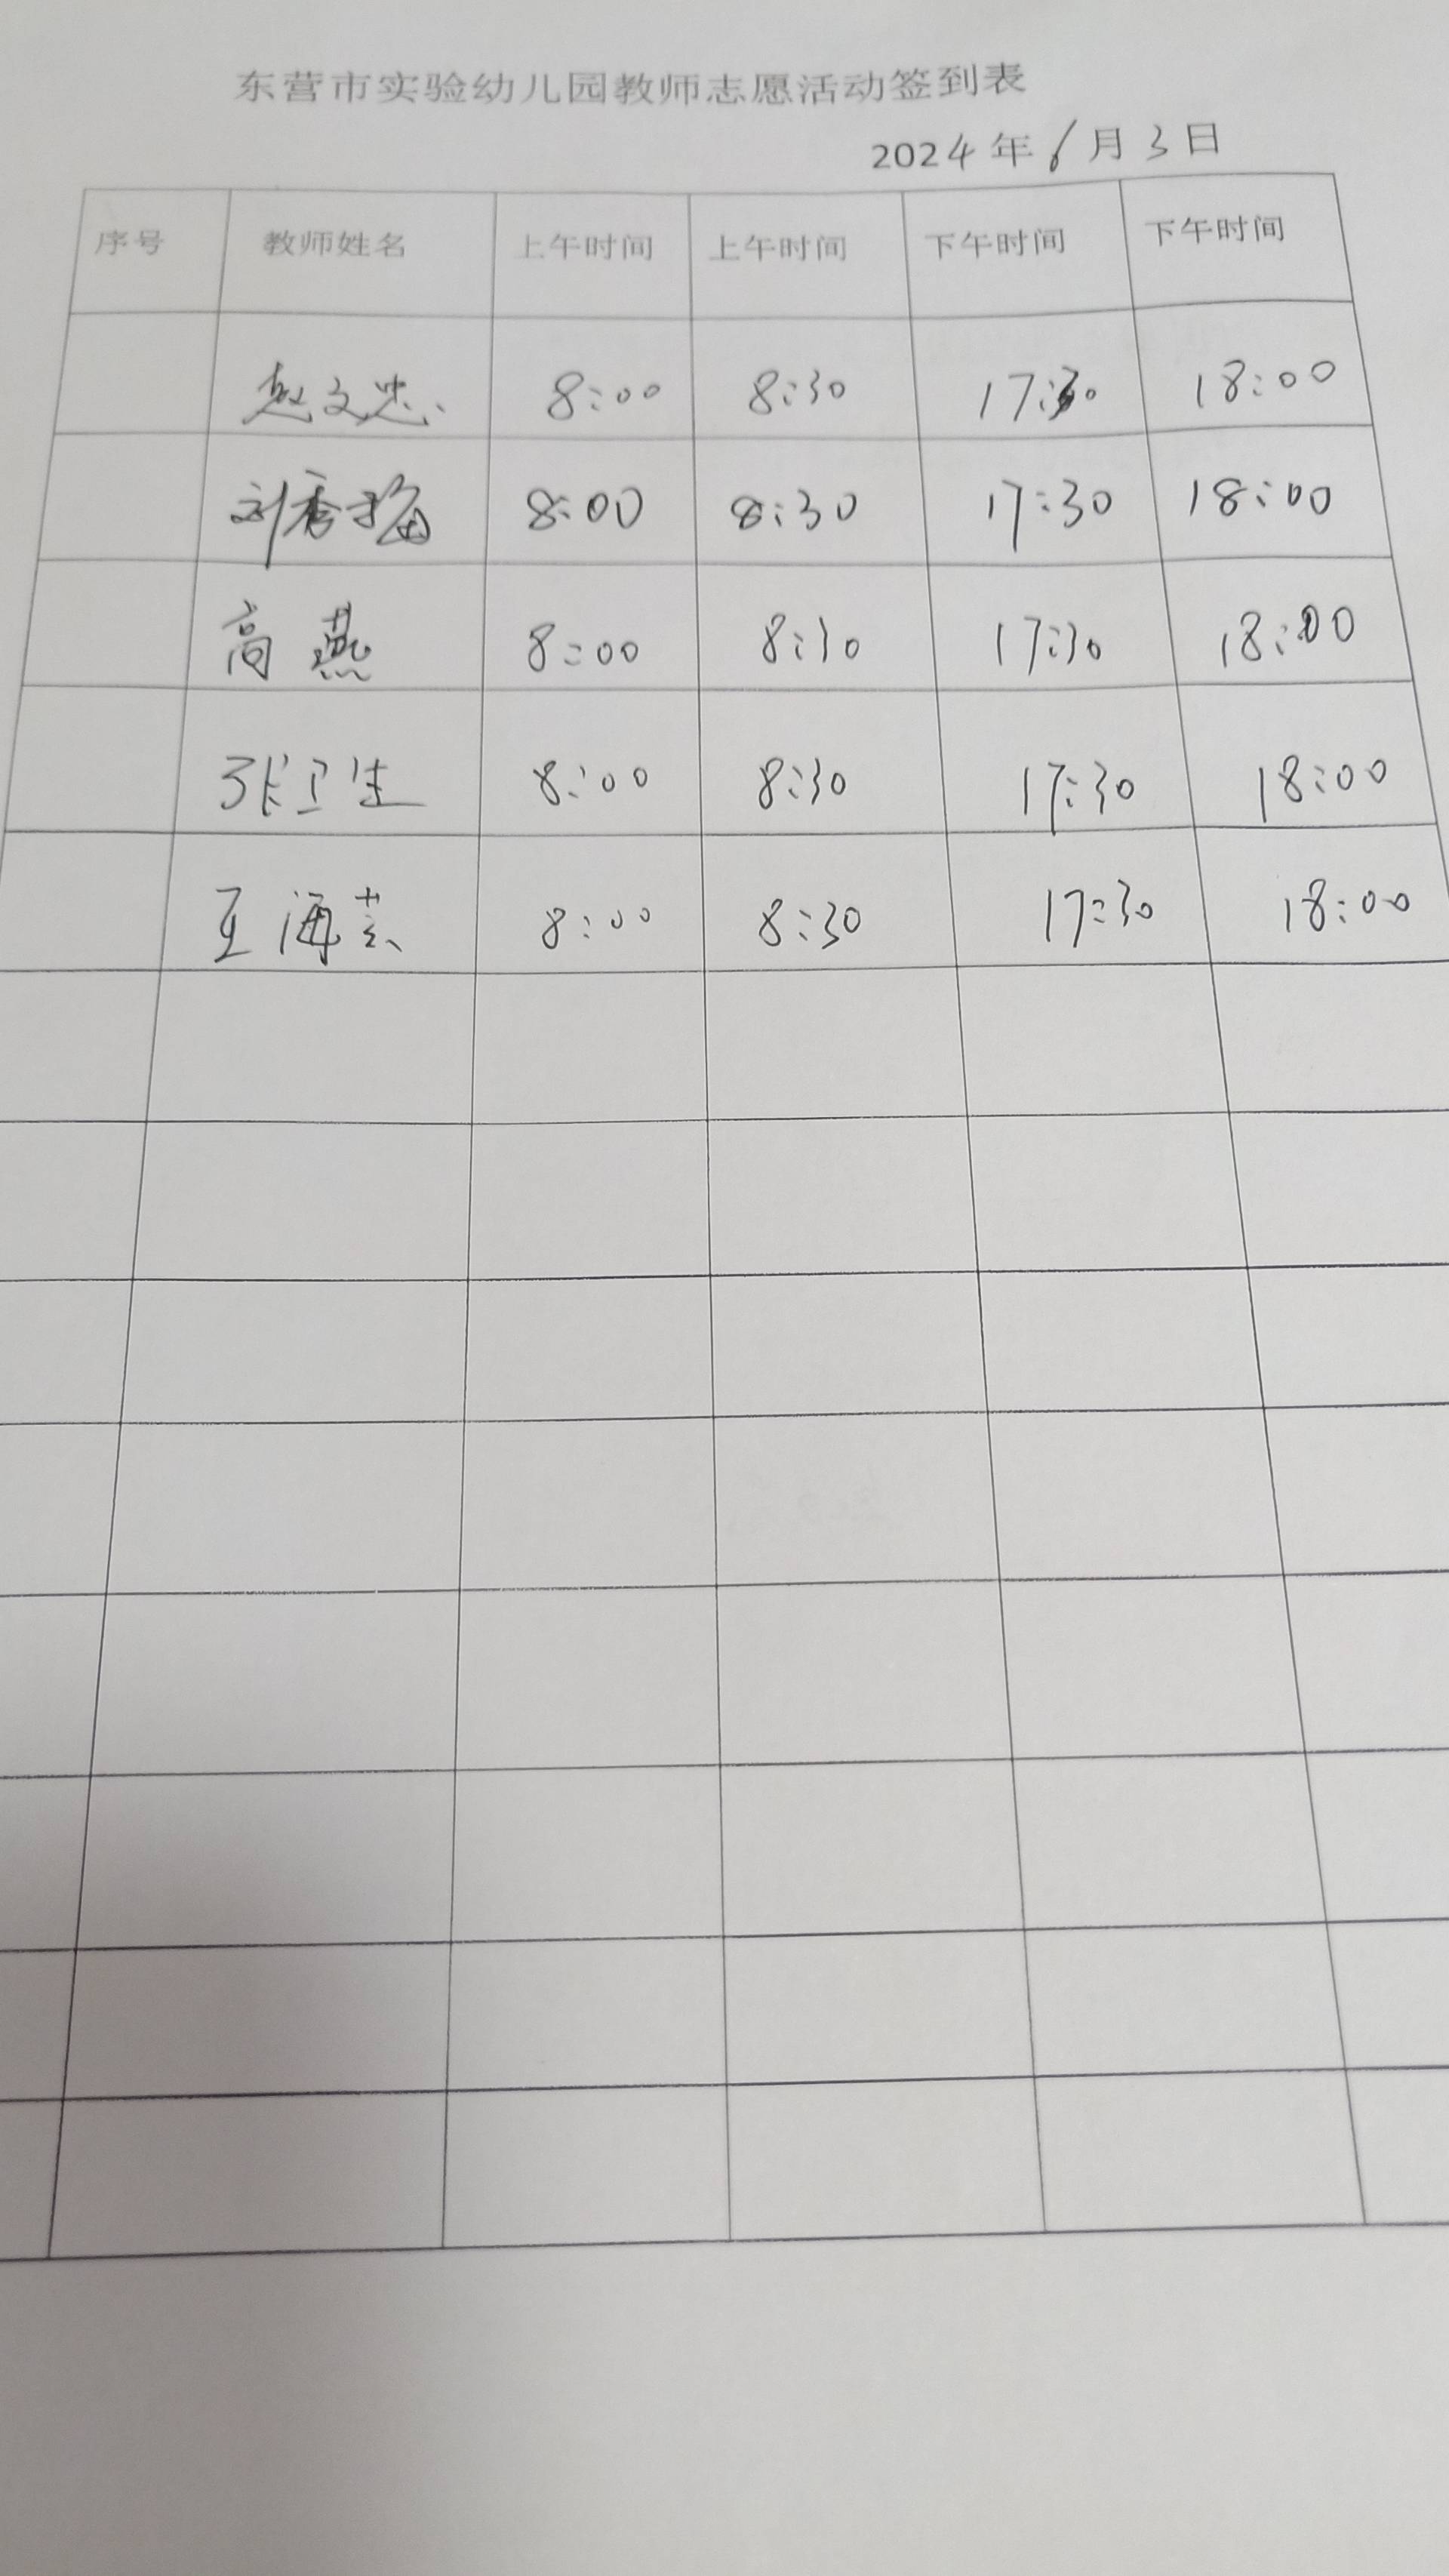 东营市实验幼儿园教师志愿活动签到表
2024年6月3日
序号 教师姓名 上午时间 上午时间 下午时间 下午时间
赵文忠 8:00 8:30 17:30 18:00
刘秀梅 8:00 8:30 17:30 18:00
高燕 8:00 8:30 17:30 18:00
张卫生 8:00 8:30 17:30 18:00
王海芸 8:00 8:30 17:30 18:00